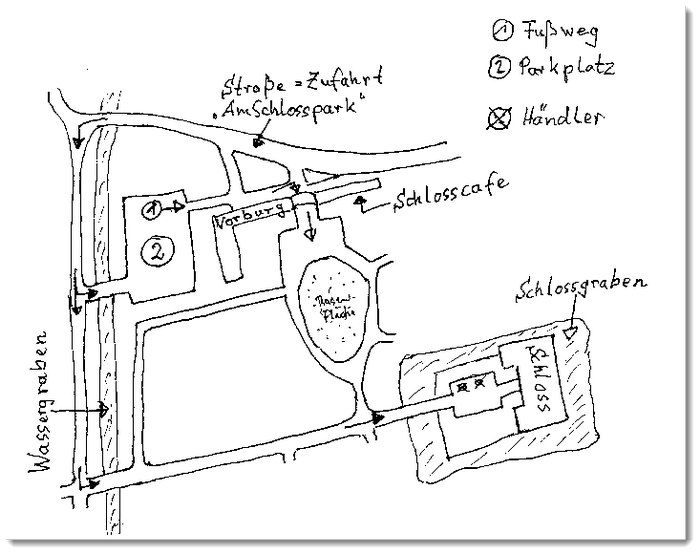 ① Fußweg
② Parkplatz
⊗ Händler
Straße = Zufahrt
"Am Schlosspark"
Schlosscafe
1
Vorburg
2
Rasen-
fläche
Schlossgraben
Schloss
Wassergraben